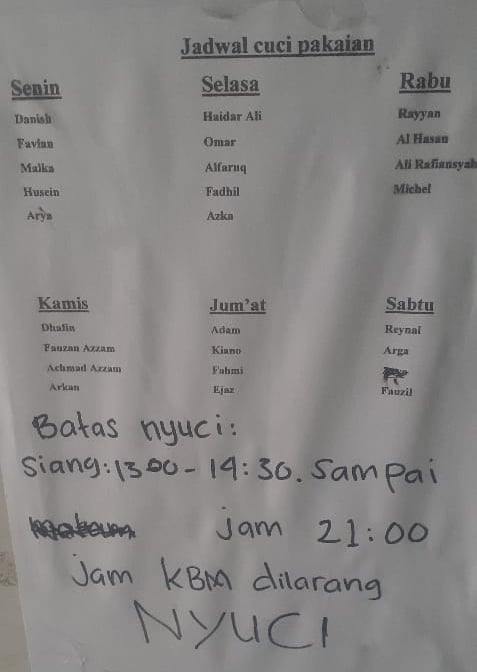 Jadwal cuci pakaian
Senin Selasa Rabu
Danish Haidar Ali Rayyan
Favian Omar Al Hasan
Malka Alfaruq Ali Rafiansyah
Husein Fadhil Michel
Arya Azka
Kamis Jum'at Sabtu
Dhafin Adam Reynal
Fauzan Azzam Kiano Arga
Achmad Azzam Fahmi
Arkan Ejaz Fauzil
Batas nyuci:
Siang: 13 00 - 14:30. Sampai
jam 21:00
Jam KBM dilarang
NYUCI